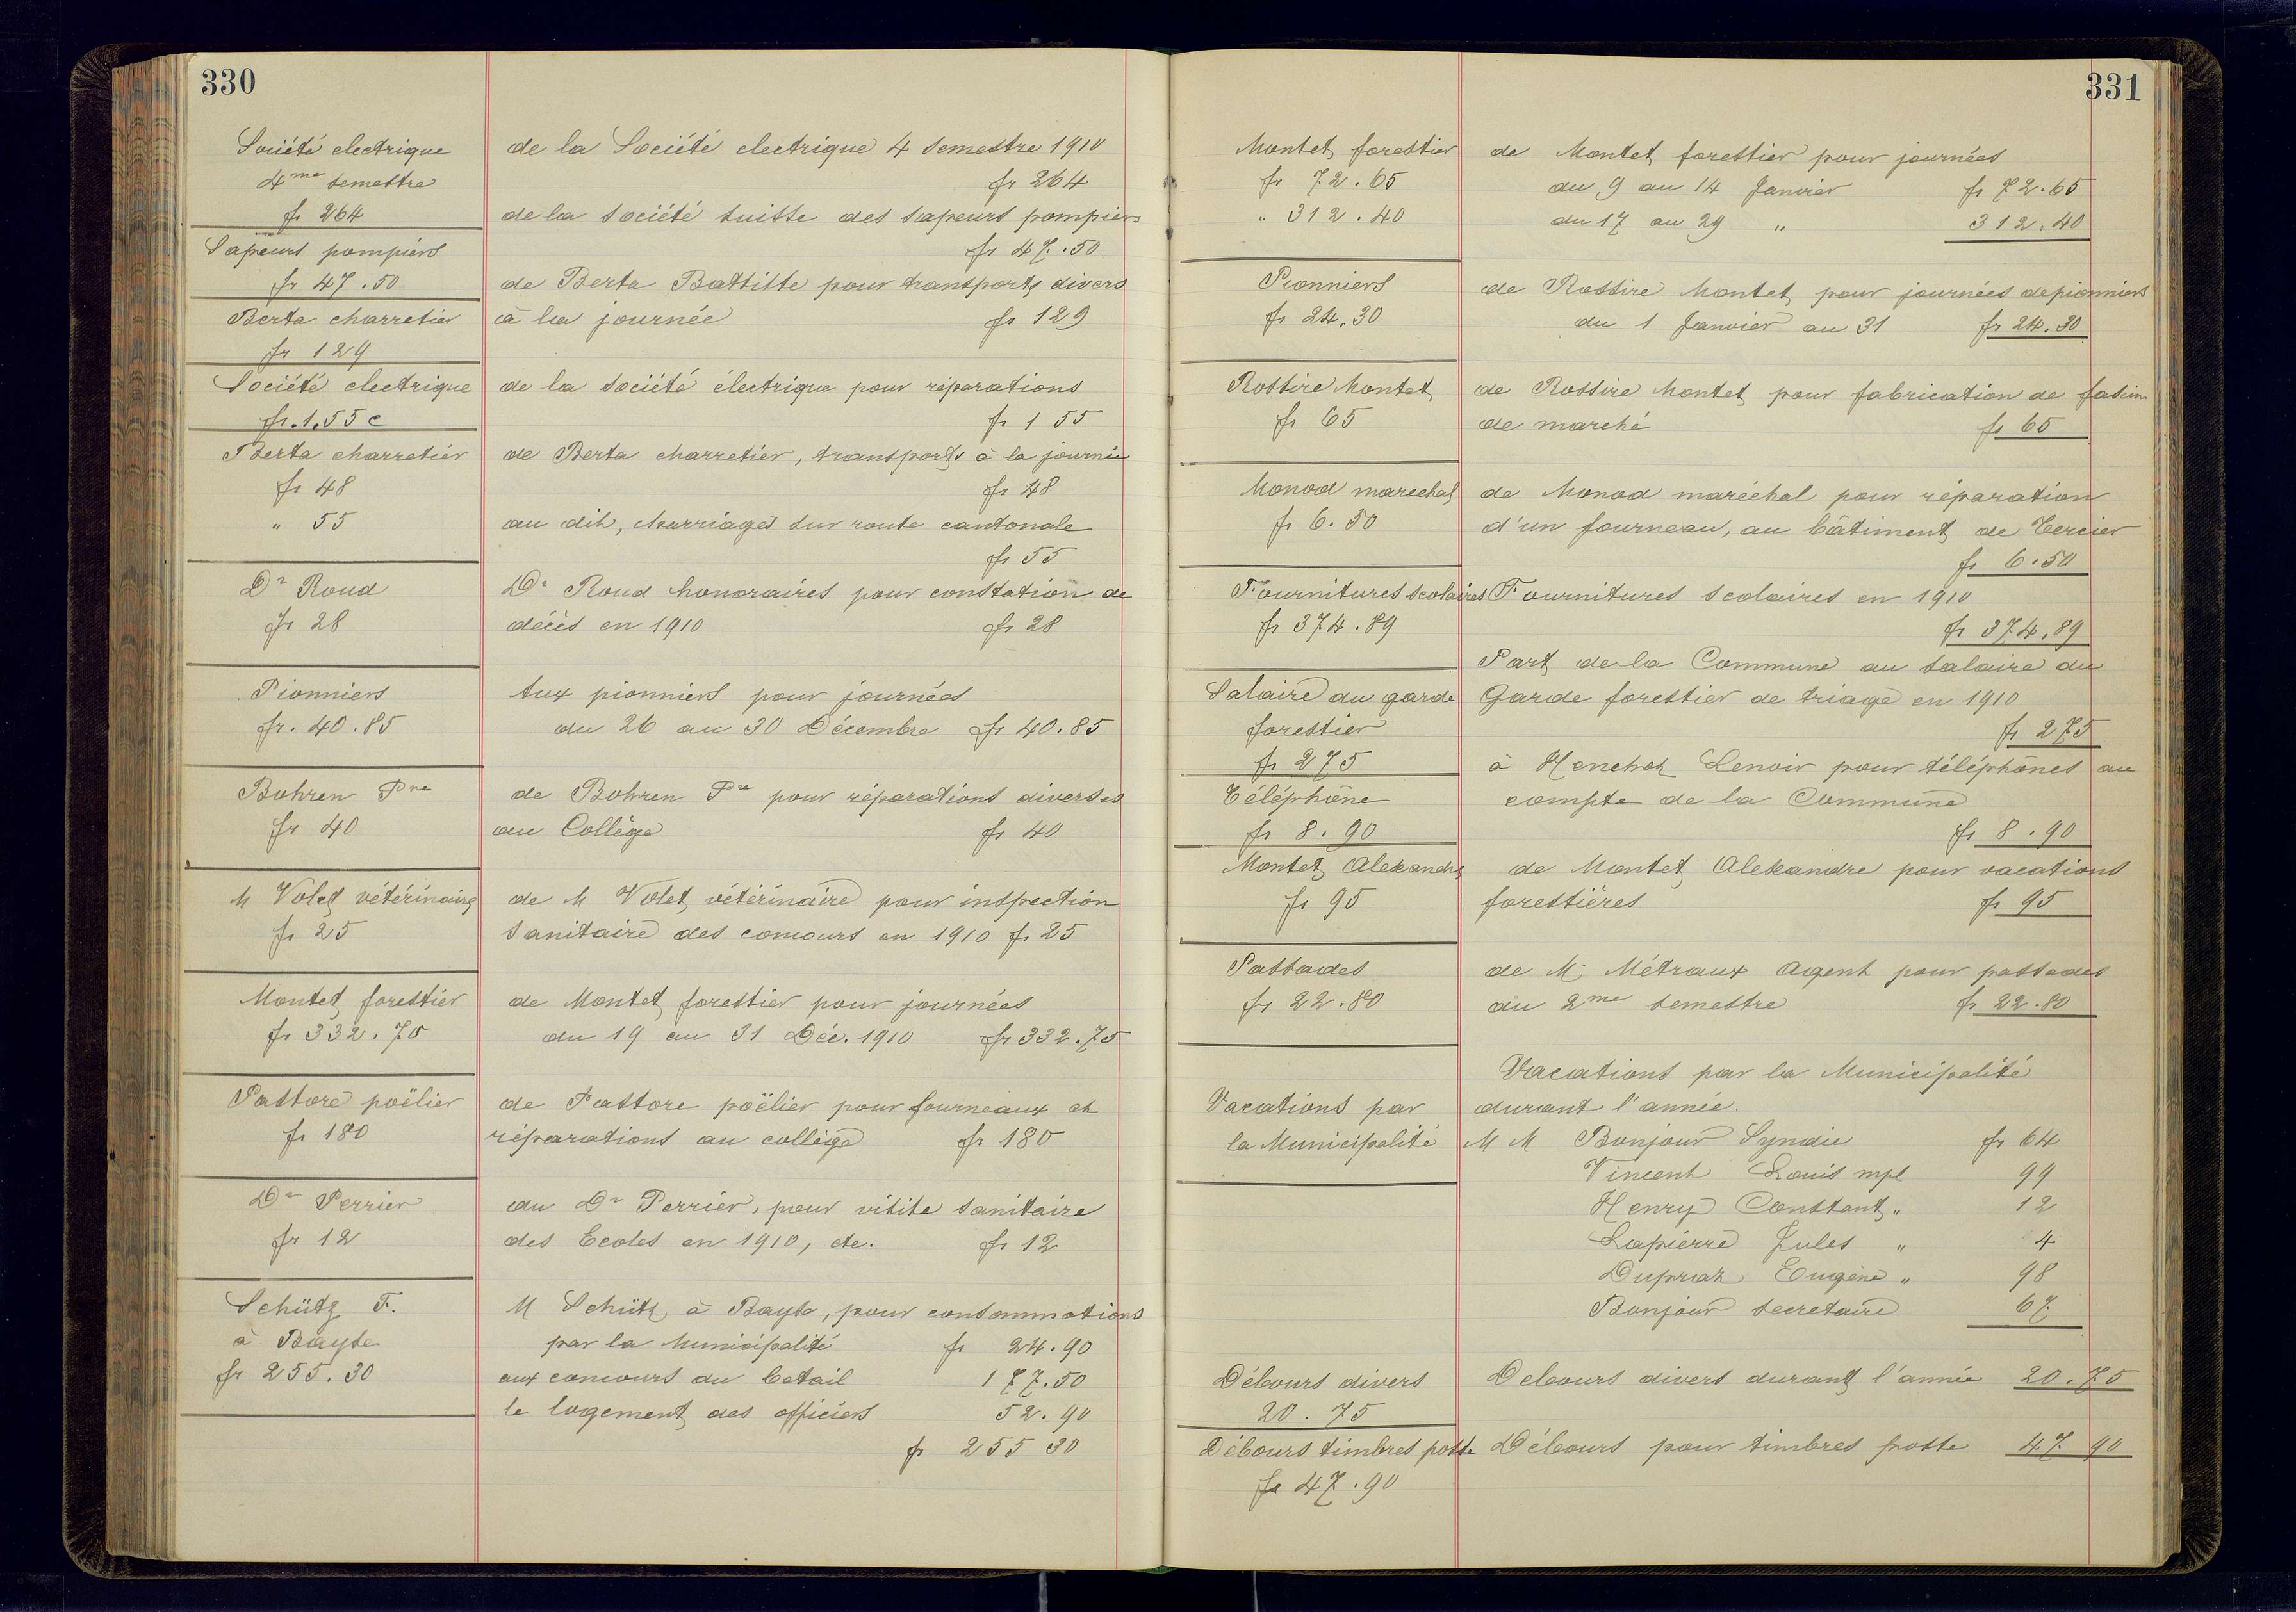 330
Société electrique
4me semestre
fr 264
Sapeurs pompiers
fr 47.50
Berta charretier
fr 129
Société electrique
fr. 1.55 c
Berta charretier
fr 48
" 55
Dr Roud
fr 28
Pionniers
fr. 40.85
Bohren Pre
fr 40
M Volet vétérinaire
fr 25
Montet forestier
fr 332.75
Pastore poëlier
fr 180
Dr Perrier
fr 12
Schütz F.
à Bayse
fr 255.30
de la Société electrique 4 semestre 1910
fr 264
de la société suisse des sapeurs pompiers
fr 47.50
de Berta Battitte pour transports divers
à la journée fr 129
de la société électrique pour réparations
fr 1 55
de Berta charretier, transports à la journée
fr 48
au dit, charriages sur route cantonale
fr 55
Dr Roud honoraires pour constation de
décès en 1910 fr 28
Aux pionniers pour journées
du 26 au 30 Décembre fr 40.85
de Bohren Pre pour réparations diverses
au Collège fr 40
de M Volet vétérinaire pour inspection
sanitaire des concours en 1910 fr 25
de Montet forestier pour journées
du 19 au 31 Déc. 1910 fr 332.75
de Pastore poëlier pour fourneaux et
réparations au collège fr 180
au Dr Perrier, pour visite sanitaire
des Ecoles en 1910, etc. fr 12
M Schütz à Bayse, pour consommations
par la Municipalité fr 24.90
aux concours du betail 177.50
le logement des officiers 52.90
fr 255 30
331
Montet forestier
fr 72.65
" 312.40
Pionniers
fr 24.30
Rossire Montet
fr 65
Monod marechal
fr 6.50
Fournitures scolaires
fr 374.89
Salaire du garde
forestier
fr 275
Téléphone
fr 8.90
Montet Alexandre
fr 95
Passades
fr 22.80
Vacations par
la Municipalité
Débours divers
20.75
Débours timbres poste
fr 47.90
de Montet forestier pour journées
du 9 au 14 Janvier fr 72.65
du 17 au 29 " 312.40
de Rossire Montet pour journées de pionniers
du 1 Janvier au 31 fr 24.30
de Rossire Montet pour fabrication de
de marché fr 65
de Monod maréchal pour réparation
d'un fourneau, au bâtiment de Tercier
fr 6.50
Fournitures scolaires en 1910
fr 374.89
Part de la Commune au salaire du
Garde forestier de triage en 1910
fr 275
à Henchoz Lenoir pour téléphones au
compte de la Commune
fr 8.90
de Montet Alexandre pour vacations
forestières fr 95
de M. Métraux Agent pour passades
du 2me semestre fr 22.80
Vacations par la Municipalité
durant l'année.
M M Bonjour Syndic fr 64
Vincent Louis mpl 99
Henry Constant " 12
Lapierre Jules " 4
Dupraz Eugène " 98
Bonjour secretaire 67
Debours divers durant l'année 20.75
Débours pour timbres poste 47 90